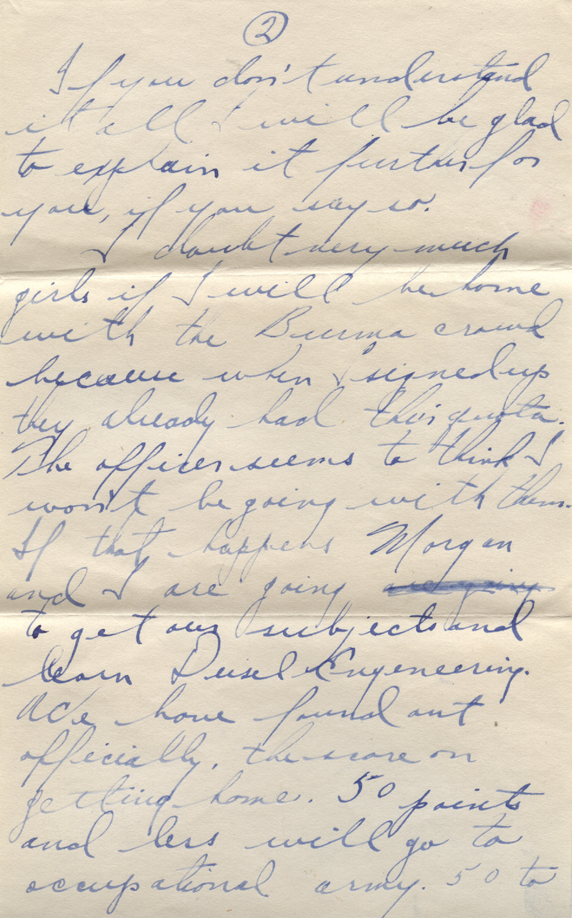 2
If you don't understand
it all I will be glad
to explain it further for
you, if you say so.
I doubt very much
girls if I will be home
with the Burma crowd
because when I signed up
they already had their quota.
The officer seems to think I
won't be going with them.
If that happens Morgan
and I are going
to get our subjects and
learn Deisel Engeneering.
We have found out
officially, the score on
getting home. 50 points
and less will go to
occupational army. 50 to